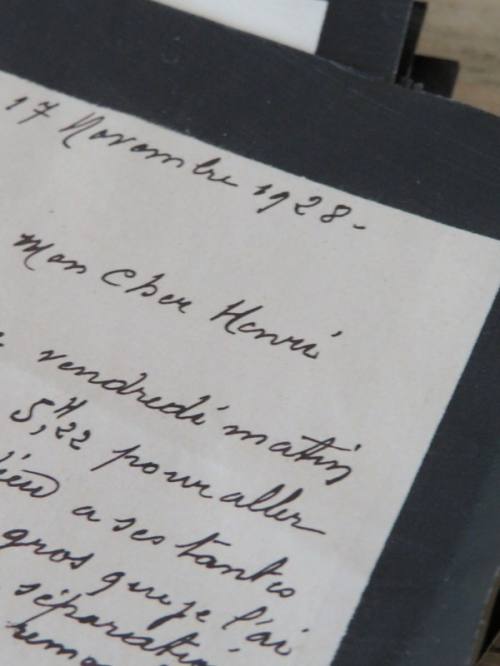 17 Novembre 1928-
Mon cher Henri
vendredi matin
5,H22 pour aller
a ses tantes
gros que je l'ai
séparation